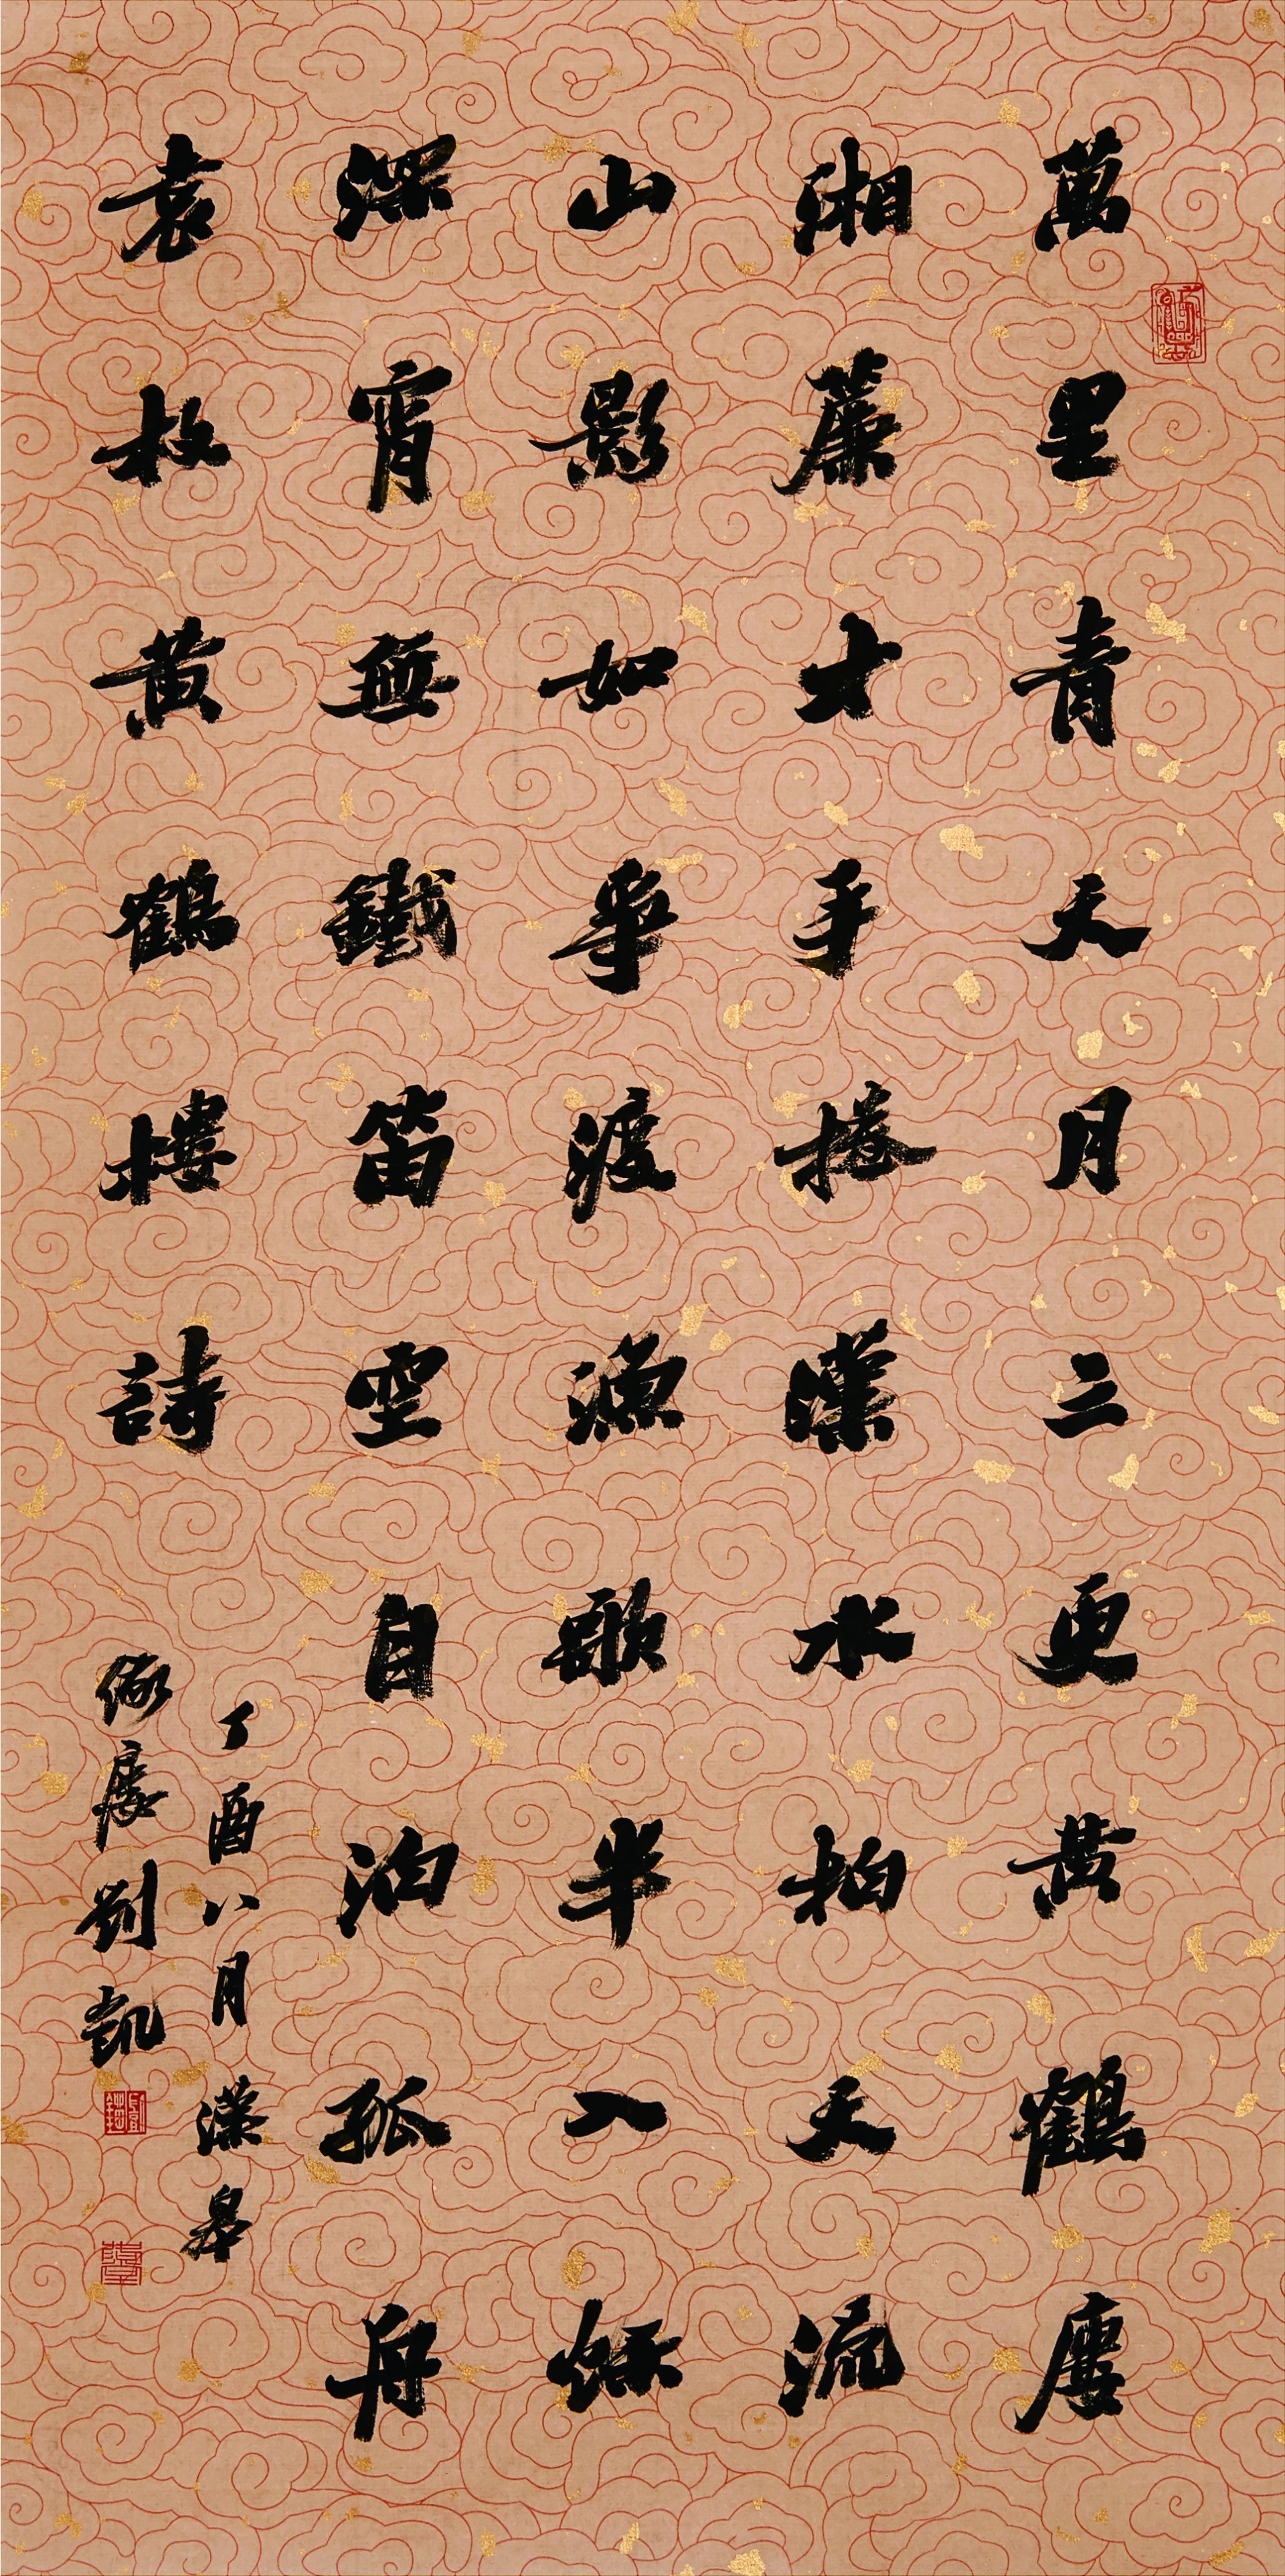 萬里青天月三更黄鶴廔
湘簾才手捲漢水拍天流
山影如爭渡漁歌半入秌
深宵無鐵笛空自泊孤舟
袁枚黄鶴樓詩
丁酉八月漢皋
廔劉凱